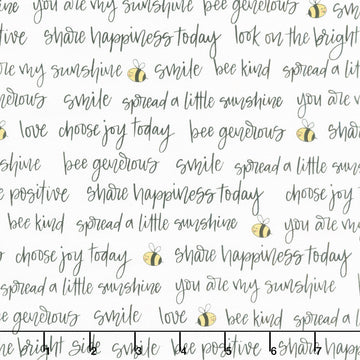 you are my sunshine bee generous
share happiness today look on the bright
are my sunshine smile bee kind spread a
smile spread a little sunshine you are
love choose joy today bee generous
bee generous smile spread a little
positive share happiness today choose joy
bee kind spread a little sunshine you are my
choose joy today share happiness today
spread a little sunshine you are my sunshine
generous smile love bee kind spread a little
the bright side smile bee positive share
1 2 3 4 5 6 7